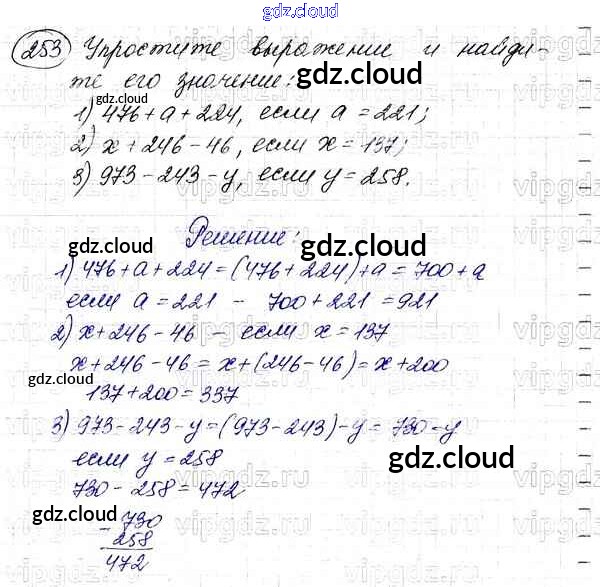 gdz.cloud
253 Упростите выражение и найди-
те его значение:
gdz.cloud
gdz.cloud
1) 476 + a + 224, если a = 221;
2) x + 246 - 46, если x = 137;
3) 973 - 243 - y, если y = 258.
gdz.cloud
gdz.cloud
Решение:
gdz.cloud
gdz.cloud
1) 476 + a + 224 = (476 + 224) + a = 700 + a
если a = 221 - 700 + 221 = 921
2) x + 246 - 46 - если x = 137
x + 246 - 46 = x + (246 - 46) = x + 200
gdz.cloud
137 + 200 = 337
gdz.cloud
3) 973 - 243 - y = (973 - 243) - y = 730 - y
если y = 258
gdz.cloud
730 - 258 = 472
gdz.cloud
- 730
258
472
gdz.cloud